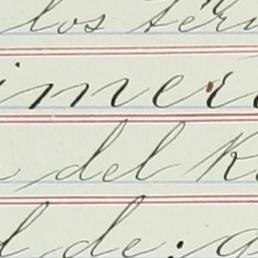 los tér
imer
del R
l de: a